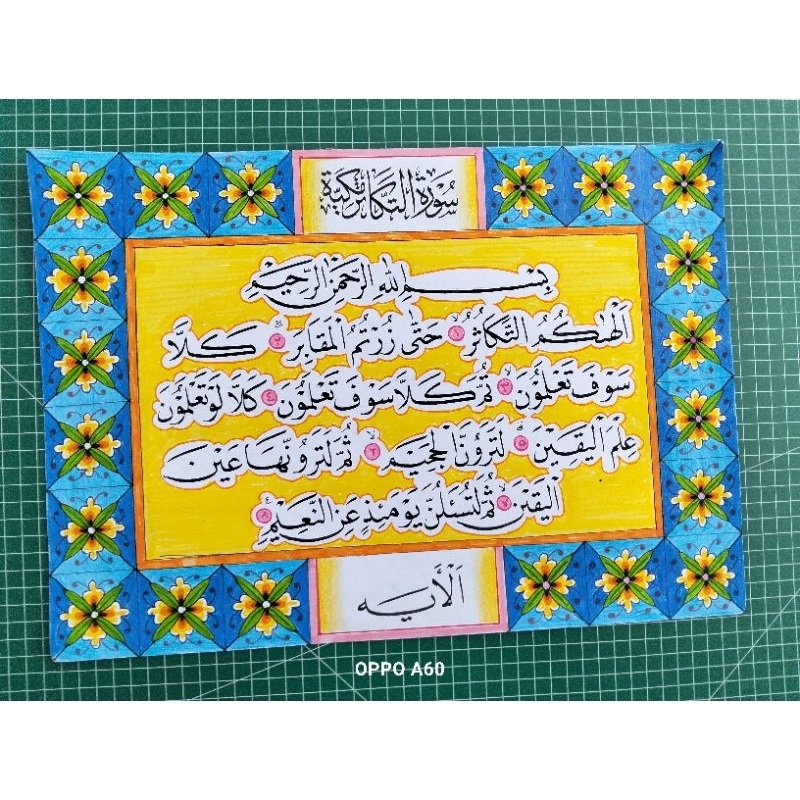 سُورَةُ التَّكَاثُرِ مَكِّيَّة
بِسْمِ اللهِ الرَّحْمٰنِ الرَّحِيْمِ
اَلْهٰىكُمُ التَّكَاثُرُ ١ حَتّٰى زُرْتُمُ الْمَقَابِرَ ٢ كَلَّا
سَوْفَ تَعْلَمُوْنَ ٣ ثُمَّ كَلَّا سَوْفَ تَعْلَمُوْنَ ٤ كَلَّا لَوْ تَعْلَمُوْنَ
عِلْمَ الْيَقِيْنِ ٥ لَتَرَوُنَّ الْجَحِيْمَ ٦ ثُمَّ لَتَرَوُنَّهَا عَيْنَ
الْيَقِيْنِ ٧ ثُمَّ لَتُسْـَٔلُنَّ يَوْمَئِذٍ عَنِ النَّعِيْمِ ٨
اَلْأَيَه
OPPO A60